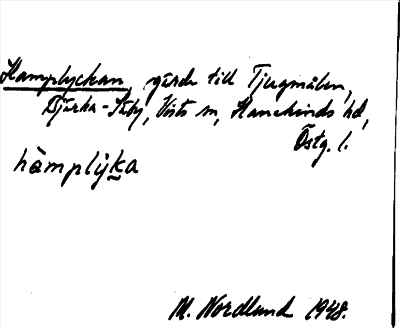 Hamplyckan, gärde till Tjugmålen,
Bjärka-Säby, Vists sn, Hanekinds hd,
Östg. l.
hàmplýka
M. Nordlund 1948.